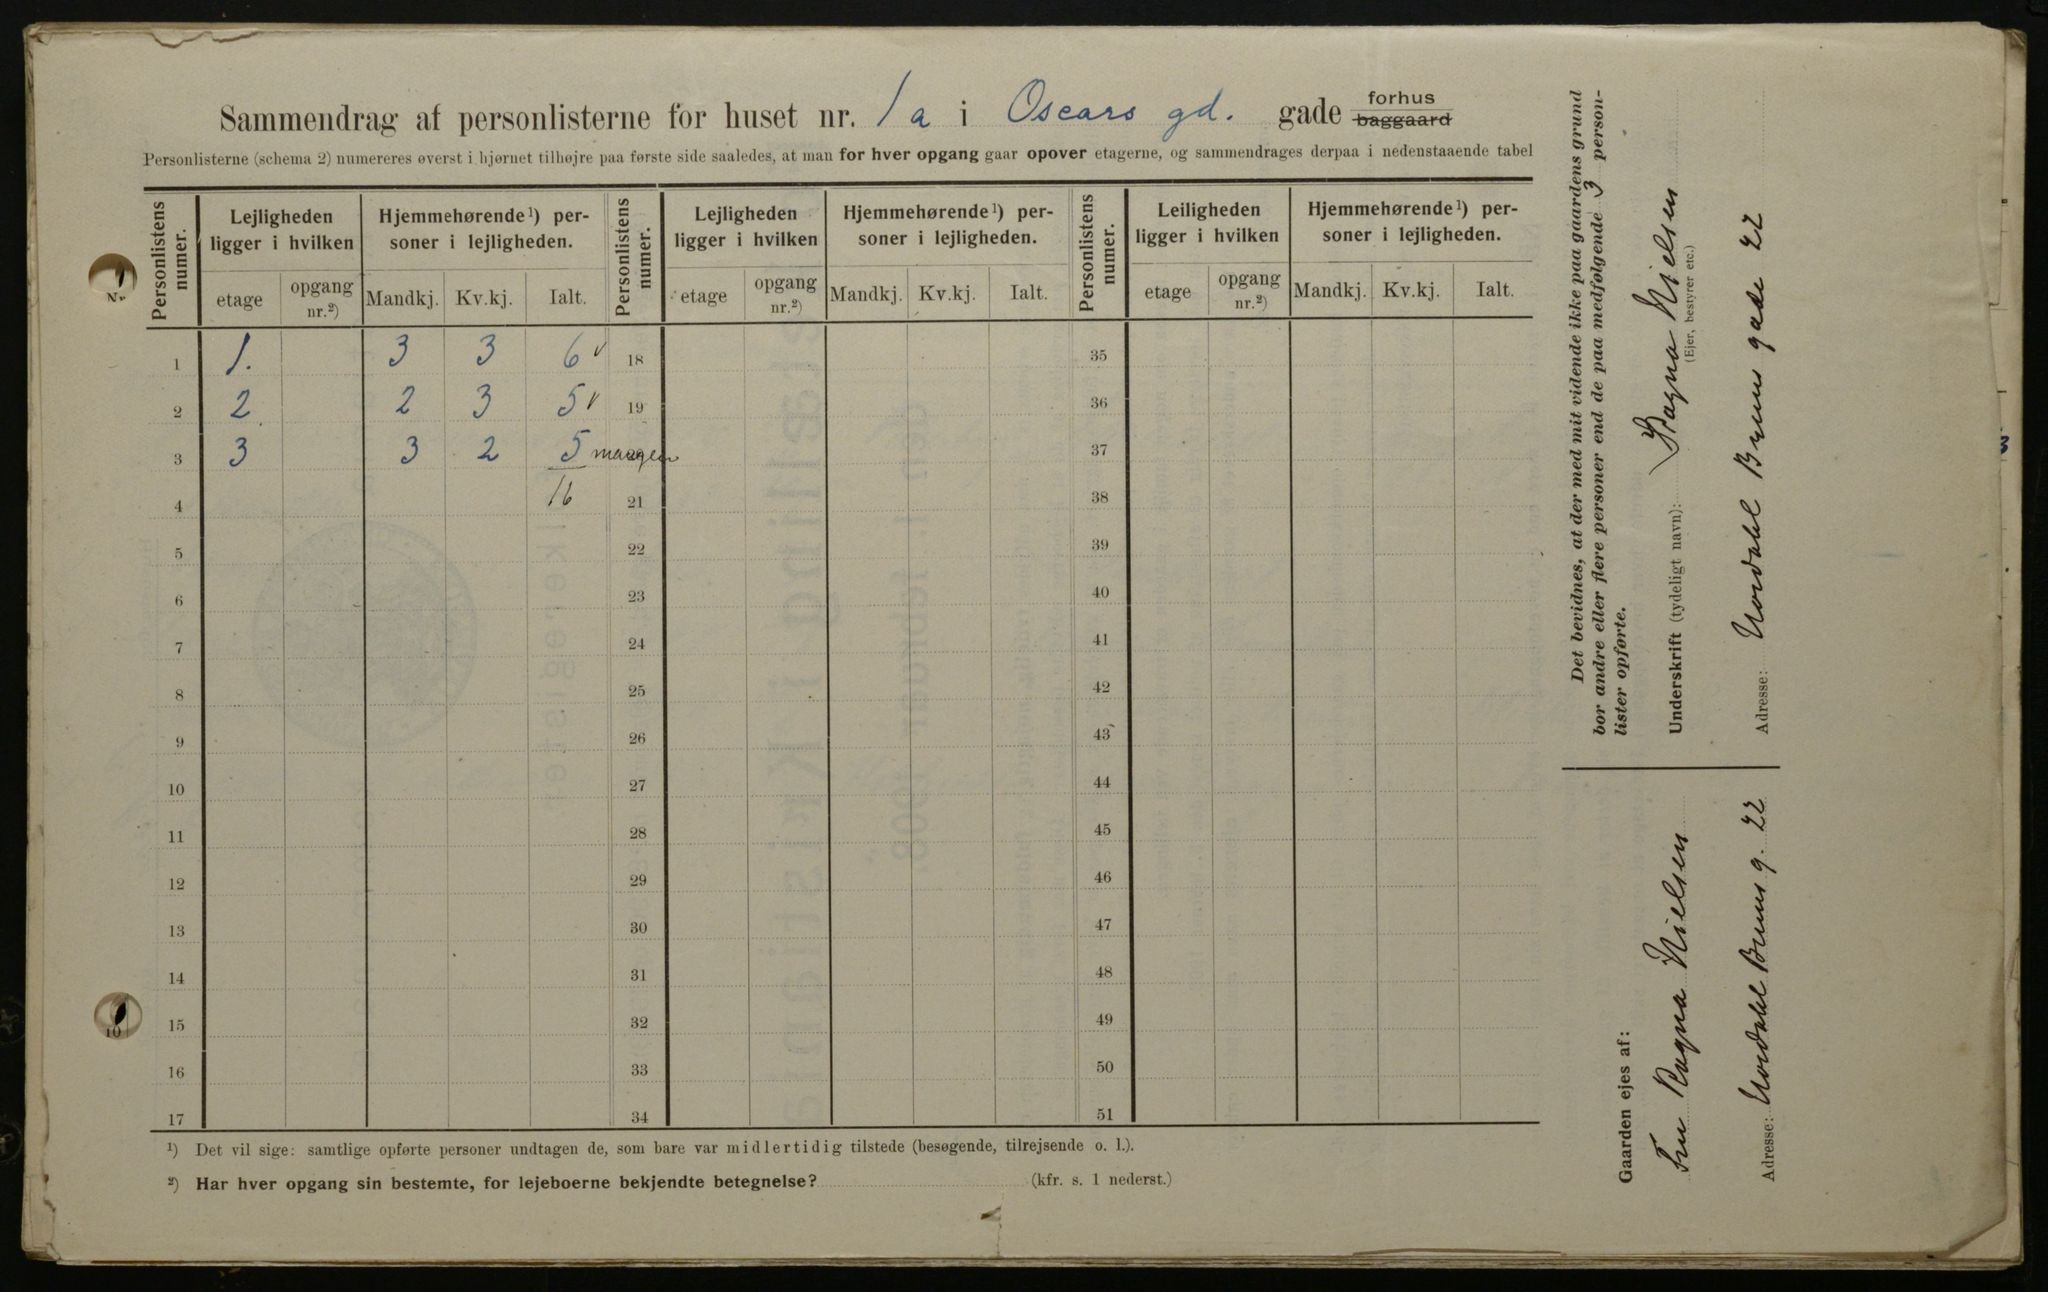 Sammendrag af personlisterne for huset nr. 1a i Oscars gd. gade forhus baggaard
Personlisterne (schema 2) numereres øverst i hjørnet tilhøjre paa første side saaledes, at man for hver opgang gaar opover etagerne, og sammendrages derpaa i nedenstaaende tabel
Personlistens numer. Lejligheden ligger i hvilken Hjemmehørende¹) personer i lejligheden. Personlistens numer. Lejligheden ligger i hvilken Hjemmehørende¹) personer i lejligheden. Personlistens numer. Leiligheden ligger i hvilken Hjemmehørende¹) personer i lejligheden.
etage opgang nr.²) Mandkj. Kv.kj. Ialt. etage opgang nr.²) Mandkj. Kv.kj. Ialt. etage opgang nr.²) Mandkj. Kv.kj. Ialt.
1 1. 3 3 6 v 18 35
2 2 2 3 5 v 19 36
3 3 3 2 5 mangler 37
4 16 21 38
5 22 39
6 23 40
7 24 41
8 25 42
9 26 43
10 27 44
11 28 45
12 29 46
13 30 47
14 31 48
15 32 49
16 33 50
17 34 51
¹) Det vil sige: samtlige opførte personer undtagen de, som bare var midlertidig tilstede (besøgende, tilrejsende o. l.).
²) Har hver opgang sin bestemte, for lejeboerne bekjendte betegnelse? (kfr. s. 1 nederst.)
Det bevidnes, at der med mit vidende ikke paa gaardens grund
bor andre eller flere personer end de paa medfølgende 3 person-
lister opførte.
Underskrift (tydeligt navn): Ragna Nielsen
(Ejer, bestyrer etc.)
Adresse: Nordahl Bruns gade 22
Gaarden ejes af:
Fru Ragna Nielsen
Adresse: Nordahl Bruns g. 22